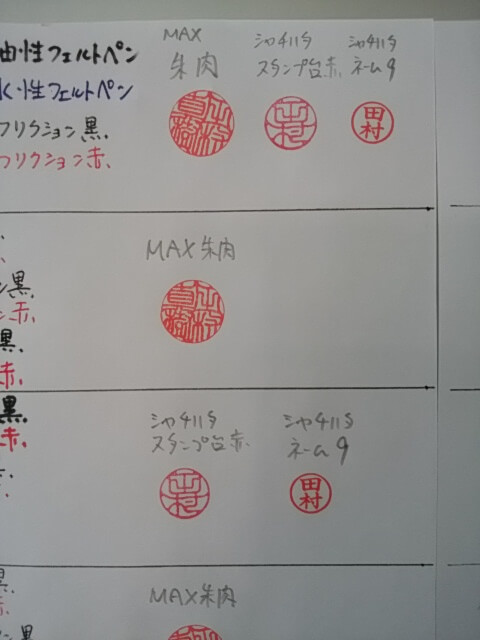 油性フェルトペン
水性フェルトペン
フリクション黒
フリクション赤
MAX
朱肉
シャチハタ
スタンプ台赤
シャチハタ
ネーム9
田村
MAX朱肉
黒
赤
黒
赤
黒
赤
シャチハタ
スタンプ台赤
シャチハタ
ネーム9
田村
黒
赤
黒
MAX朱肉